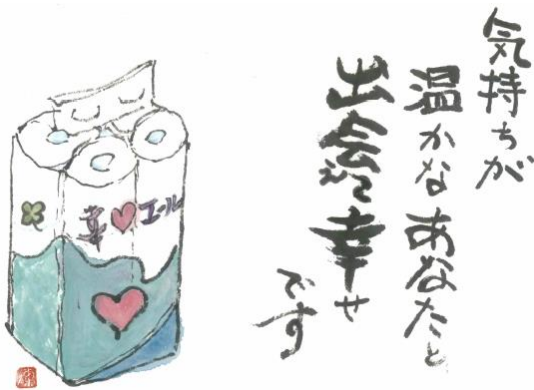 気持ちが
温かなあなたと
出会えて幸せ
です
幸❤エール